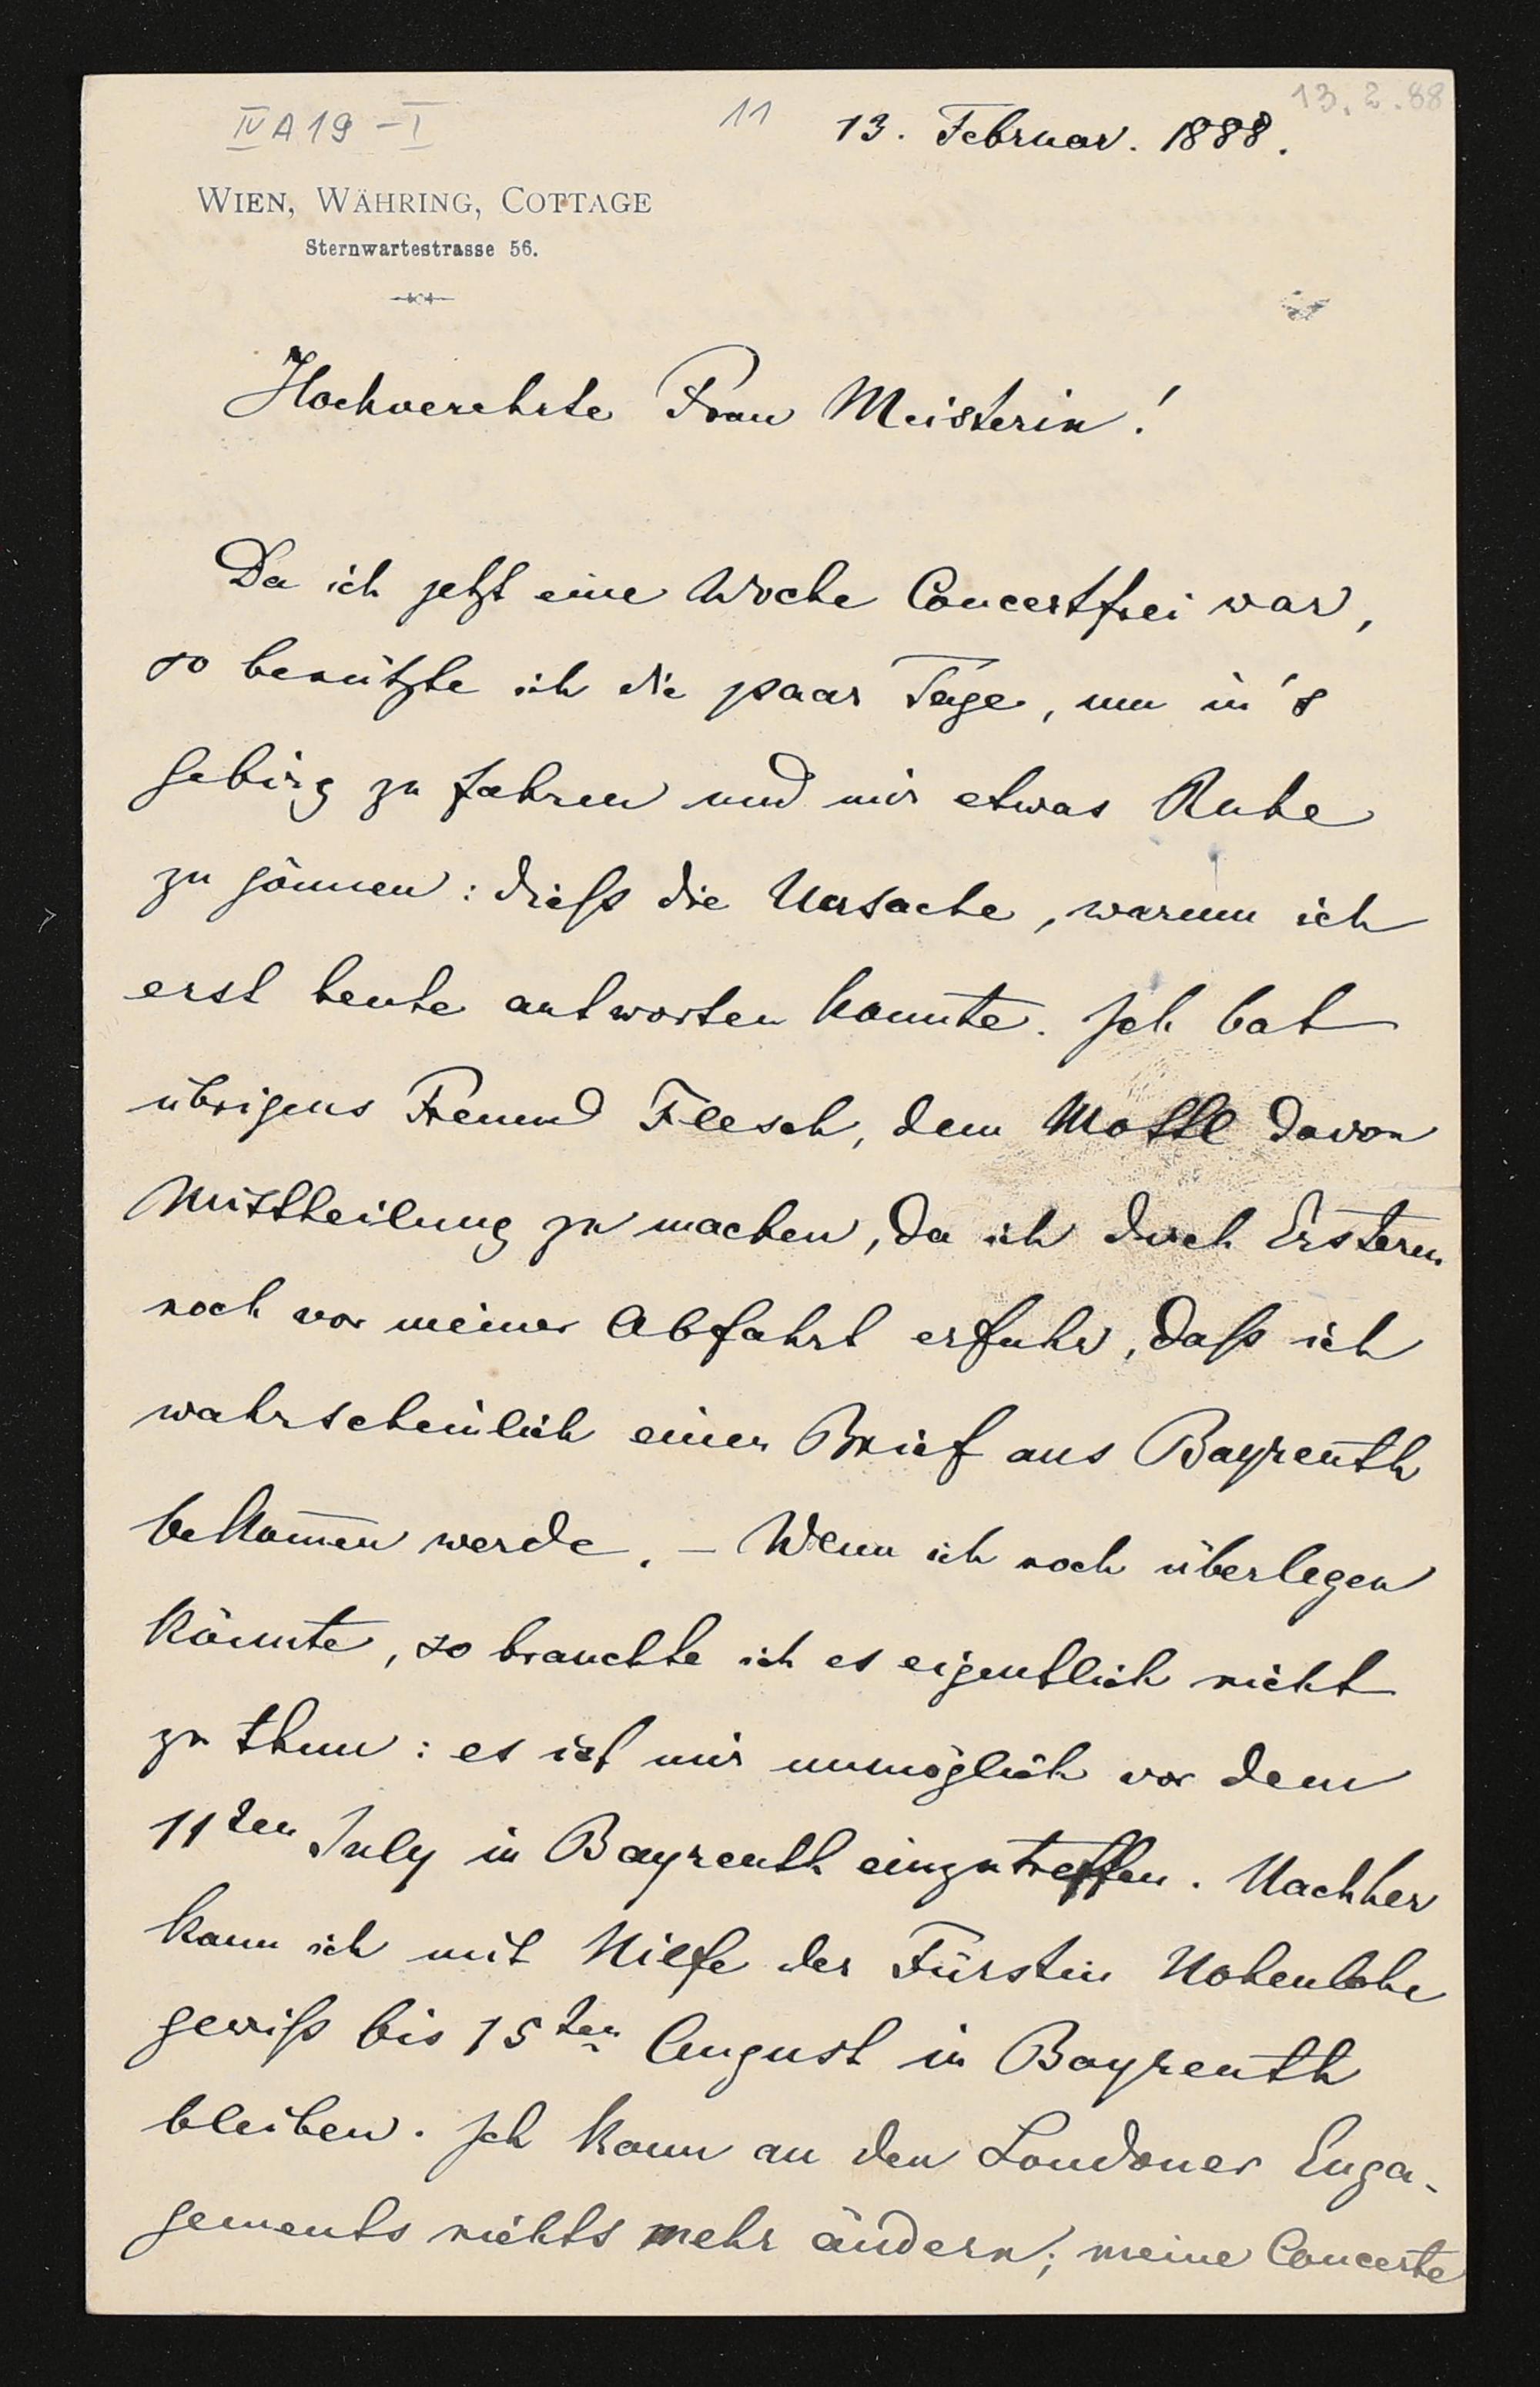 13.2.88
IV A 19 - I
11
13. Februar. 1888.
WIEN, WÄHRING, COTTAGE
Sternwartestrasse 56.
Hochverehrte Frau Meisterin!
Da ich jetzt eine Woche Concertfrei war,
so benützte ich die paar Tage, um in's
Gebirg zu fahren und mir etwas Ruhe
zu gönnen: dieß die Ursache, warum ich
erst heute antworten konnte. Ich bat
übrigens Freund Flesch, dem Mottl davon
Mittheilung zu machen, da ich durch Ersteren
noch vor meiner Abfahrt erfuhr, daß ich
wahrscheinlich einen Brief aus Bayreuth
bekom̄en werde. – Wenn ich noch überlegen
könnte, so brauchte ich es eigentlich nicht
zu thun: es ist mir unmöglich vor dem
11ten July in Bayreuth einzutreffen. Nachher
kann ich mit Hilfe der Fürstin Hohenlohe
gewiß bis 15ten August in Bayreuth
bleiben. Ich kann an den Londoner Enga-
gements nichts mehr ändern; meine Concerte